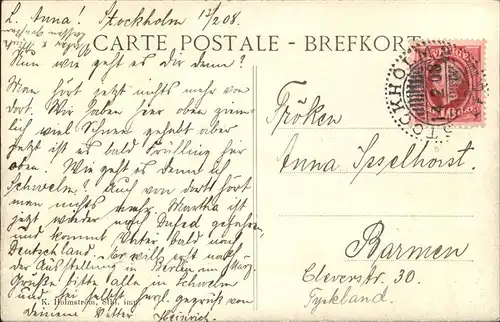 L. Anna! Stockholm 13/2 08.
CARTE POSTALE - BREFKORT.
Nun wie geht es Dir denn?
Man hört jetzt nichts mehr von
dort. Wir haben hier oben ziem-
lich viel Schnee gehabt aber
jetzt ist es bald Frühling hier
oben. Wie geht es denn in
Schwelm? Auch von dort hört
man nichts mehr. Martha ist
jetzt wieder nach gefahren,
und kommt Vater bald nach
Deutschland. Er will erst nach
der Ausstellung in Berlin im März.
Grüße bitte alle in Schwelm
und sei selbst herzl. gegrüßt von
Deinem Vetter Heinrich.
K. Holmström, Sthlm imp.
STOCKHOLM
Fröken
Anna Isselhorst.
Barmen
Cleverstr. 30.
Tyskland.